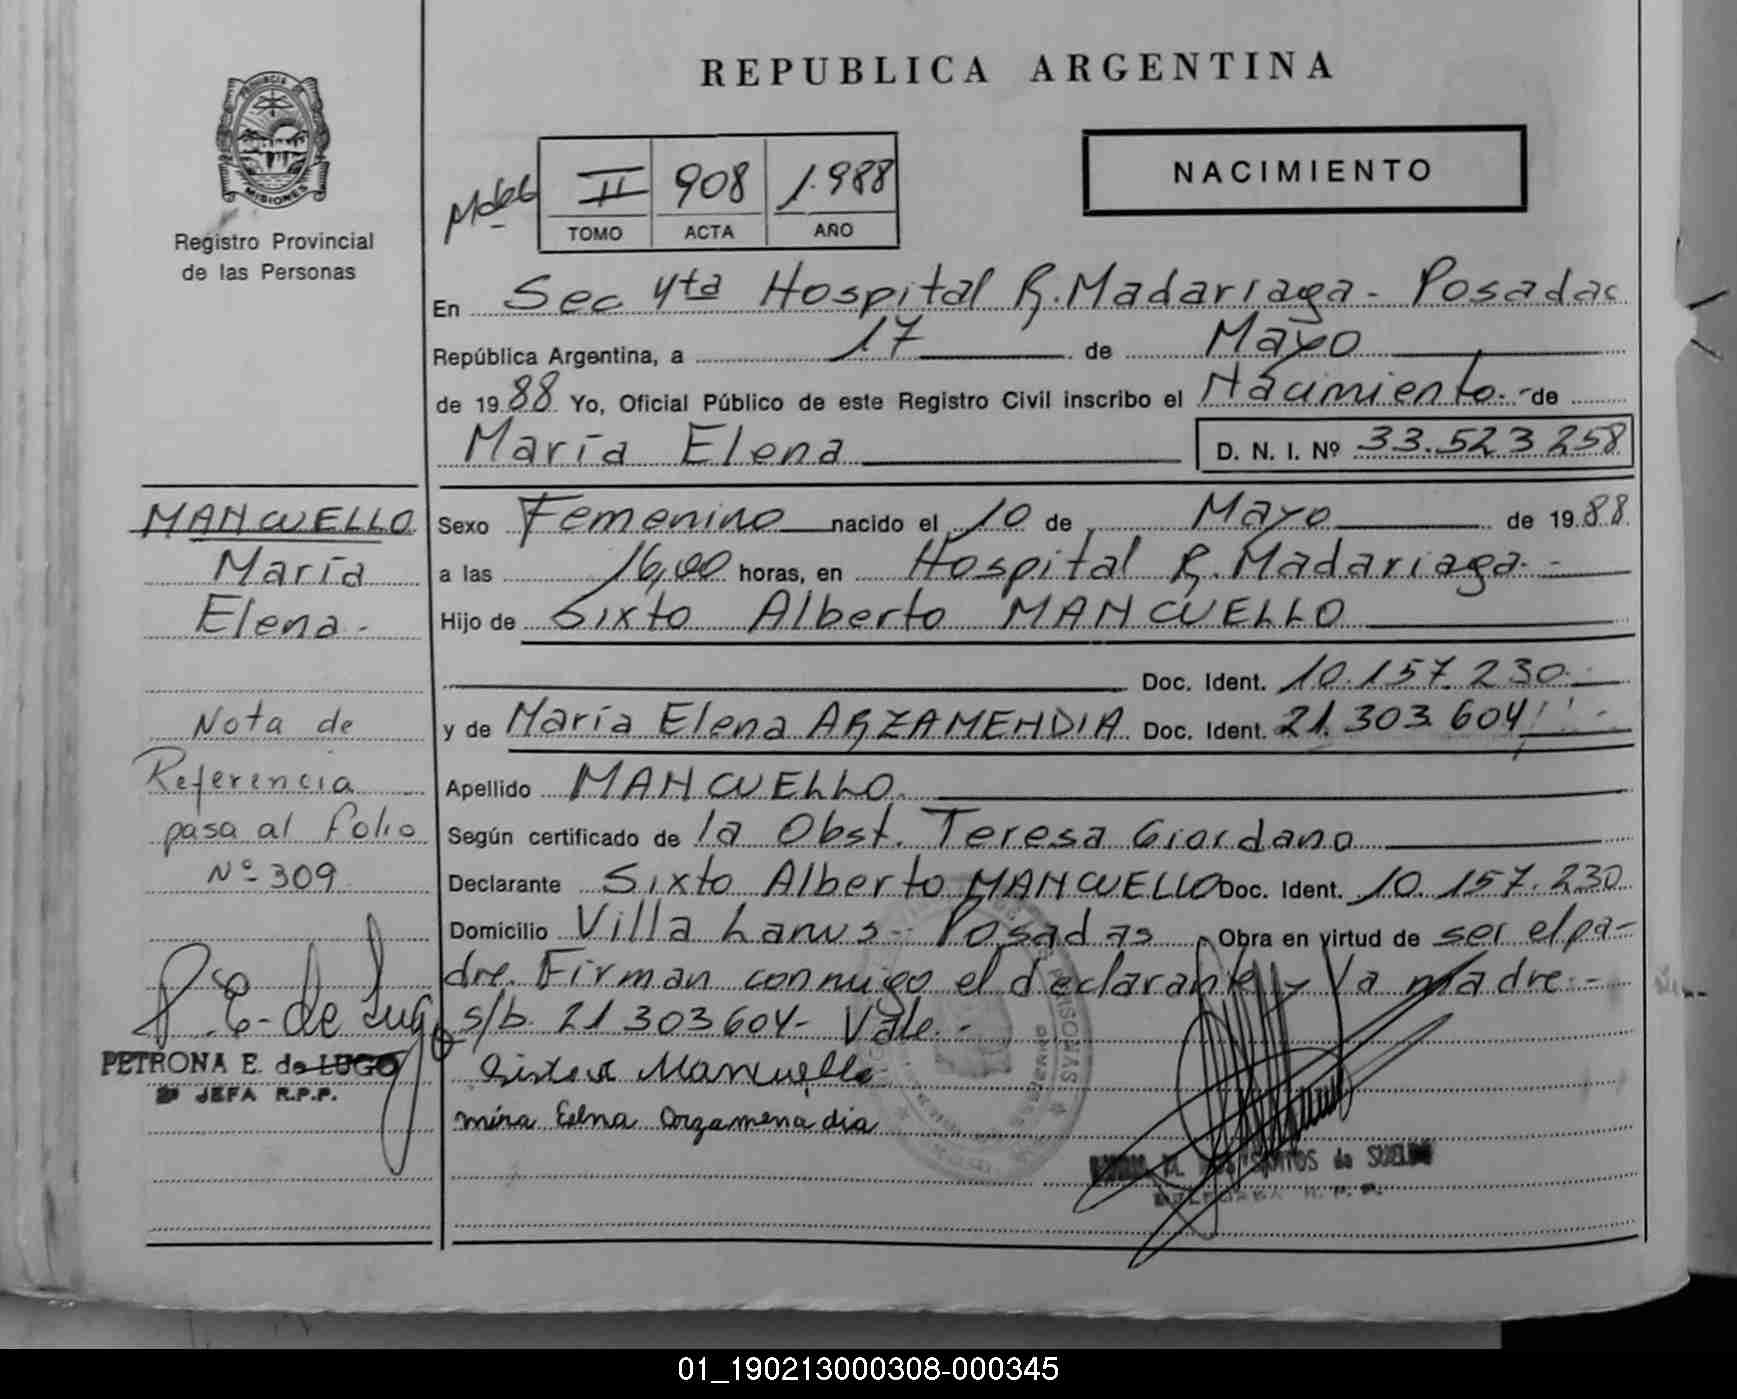 REPUBLICA ARGENTINA
PROVINCIA DE
MISIONES
Registro Provincial
de las Personas
II 908 1.988
TOMO ACTA AÑO
NACIMIENTO
En Sec 4ta Hospital R. Madariaga - Posadas
República Argentina, a 17 de Mayo
de 1988 Yo, Oficial Público de este Registro Civil inscribo el Nacimiento.- de
María Elena D. N. I. Nº 33.523.258
MANCUELLO
María
Elena-
Nota de
Referencia
pasa al folio
Nº 309
PETRONA E. de LUGO
JEFA R.P.P.
Sexo Femenino nacido el 10 de Mayo de 1988
a las 16,00 horas, en Hospital R. Madariaga.-
Hijo de Sixto Alberto MANCUELLO
Doc. Ident. 10.157.230.-
y de María Elena ARZAMENDIA Doc. Ident. 21.303.604
Apellido MANCUELLO.
Según certificado de la Obst. Teresa Giordano
Declarante Sixto Alberto MANCUELLO Doc. Ident. 10.157.230
Domicilio Villa Lanus - Posadas Obra en virtud de ser el pa-
dre. Firman conmigo el declarante y la madre.-
s/b. 21.303.604- Vale.-
Mancuello
Elena Arzamendia
M. SANTOS de SUELDO
R. P. P.
01_190213000308-000345